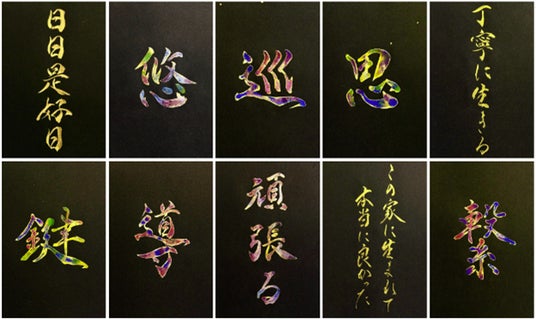 日日是好日
悠
巡
思
丁寧に生きる
鍵
導
頑張る
この家に生まれて
本当に良かった
繋